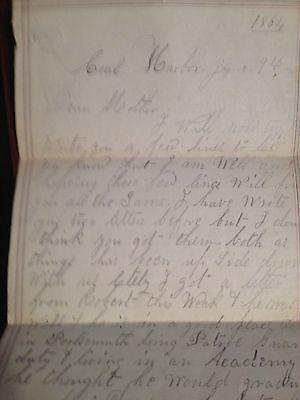 1864
Coal Harbor June 9th
Dear Mother
I Will now try
Write you a few lines to let
you know that I am Well and
hoping these few lines Will find
you all the Same, I have Wrote
you two letters before but I don
think you got them both as
things has been up Side down
With us lately I got a letter
from Robert this Week
Well he is in a good place
in Portsmouth doing Patrol Guar
duty living in an Academy
he thought he Would